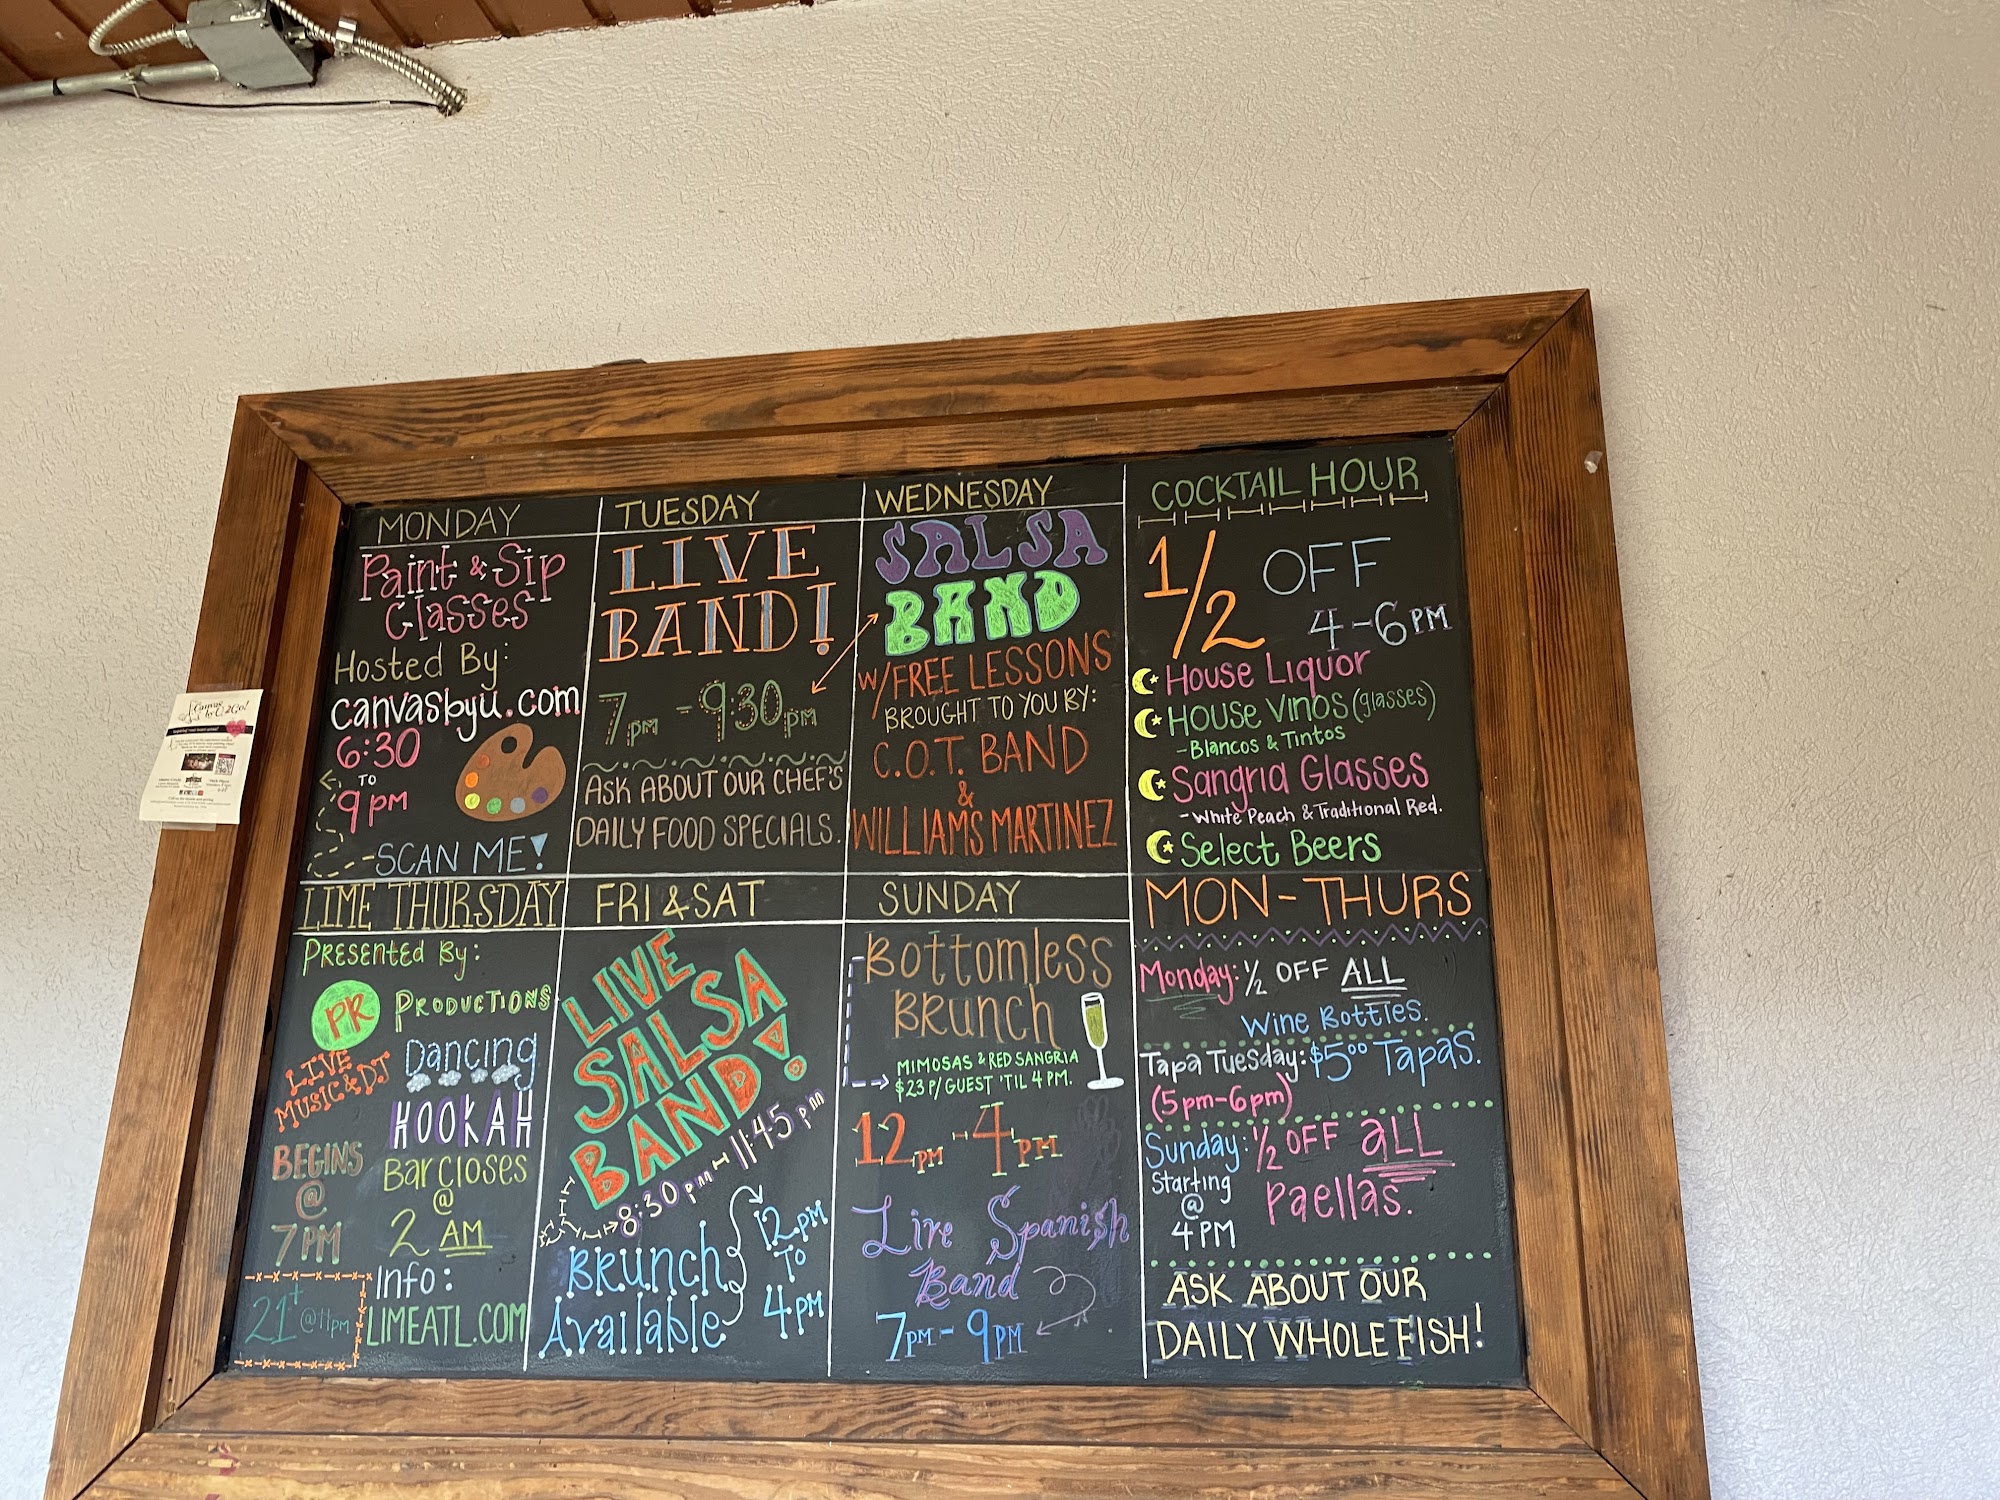 MONDAY
Paint & Sip
Classes
Hosted By:
canvasbyu.com
6:30
TO
9 PM
-SCAN ME!
TUESDAY
LIVE
BAND!
7pm - 930pm
ASK ABOUT OUR CHEF'S
DAILY FOOD SPECIALS.
WEDNESDAY
SALSA
BAND
W/FREE LESSONS
BROUGHT TO YOU BY:
C.O.T. BAND
&
WILLIAMS MARTINEZ
COCKTAIL HOUR
1/2 OFF
4-6PM
House Liquor
House Vinos (glasses)
-Blancos & Tintos
Sangria Glasses
-White Peach & Traditional Red.
Select Beers
LIME THURSDAY
PRESENTED By:
PR PRODUCTIONS
LIVE
MUSIC & DJ
BEGINS
@
7PM
21+ @11pm
Dancing
HOOKAH
BAR CLOSES
@
2 AM
Info:
LIMEATL.COM
FRI & SAT
LIVE
SALSA
BAND!
8:30pm-11:45pm
BRUNCH
Available
12PM
TO
4PM
SUNDAY
Bottomless
Brunch
MIMOSAS & RED SANGRIA
$23 P/ GUEST 'TIL 4 PM.
12PM - 4PM
Live Spanish
Band
7PM - 9PM
MON-THURS
Monday: 1/2 OFF ALL
Wine Bottles.
Tapa Tuesday: $5.00 Tapas.
(5pm-6pm)
Sunday: 1/2 OFF aLL
Starting
@
4 PM
Paellas.
ASK ABOUT OUR
DAILY WHOLE FISH!
Canvas
by U 2Go!